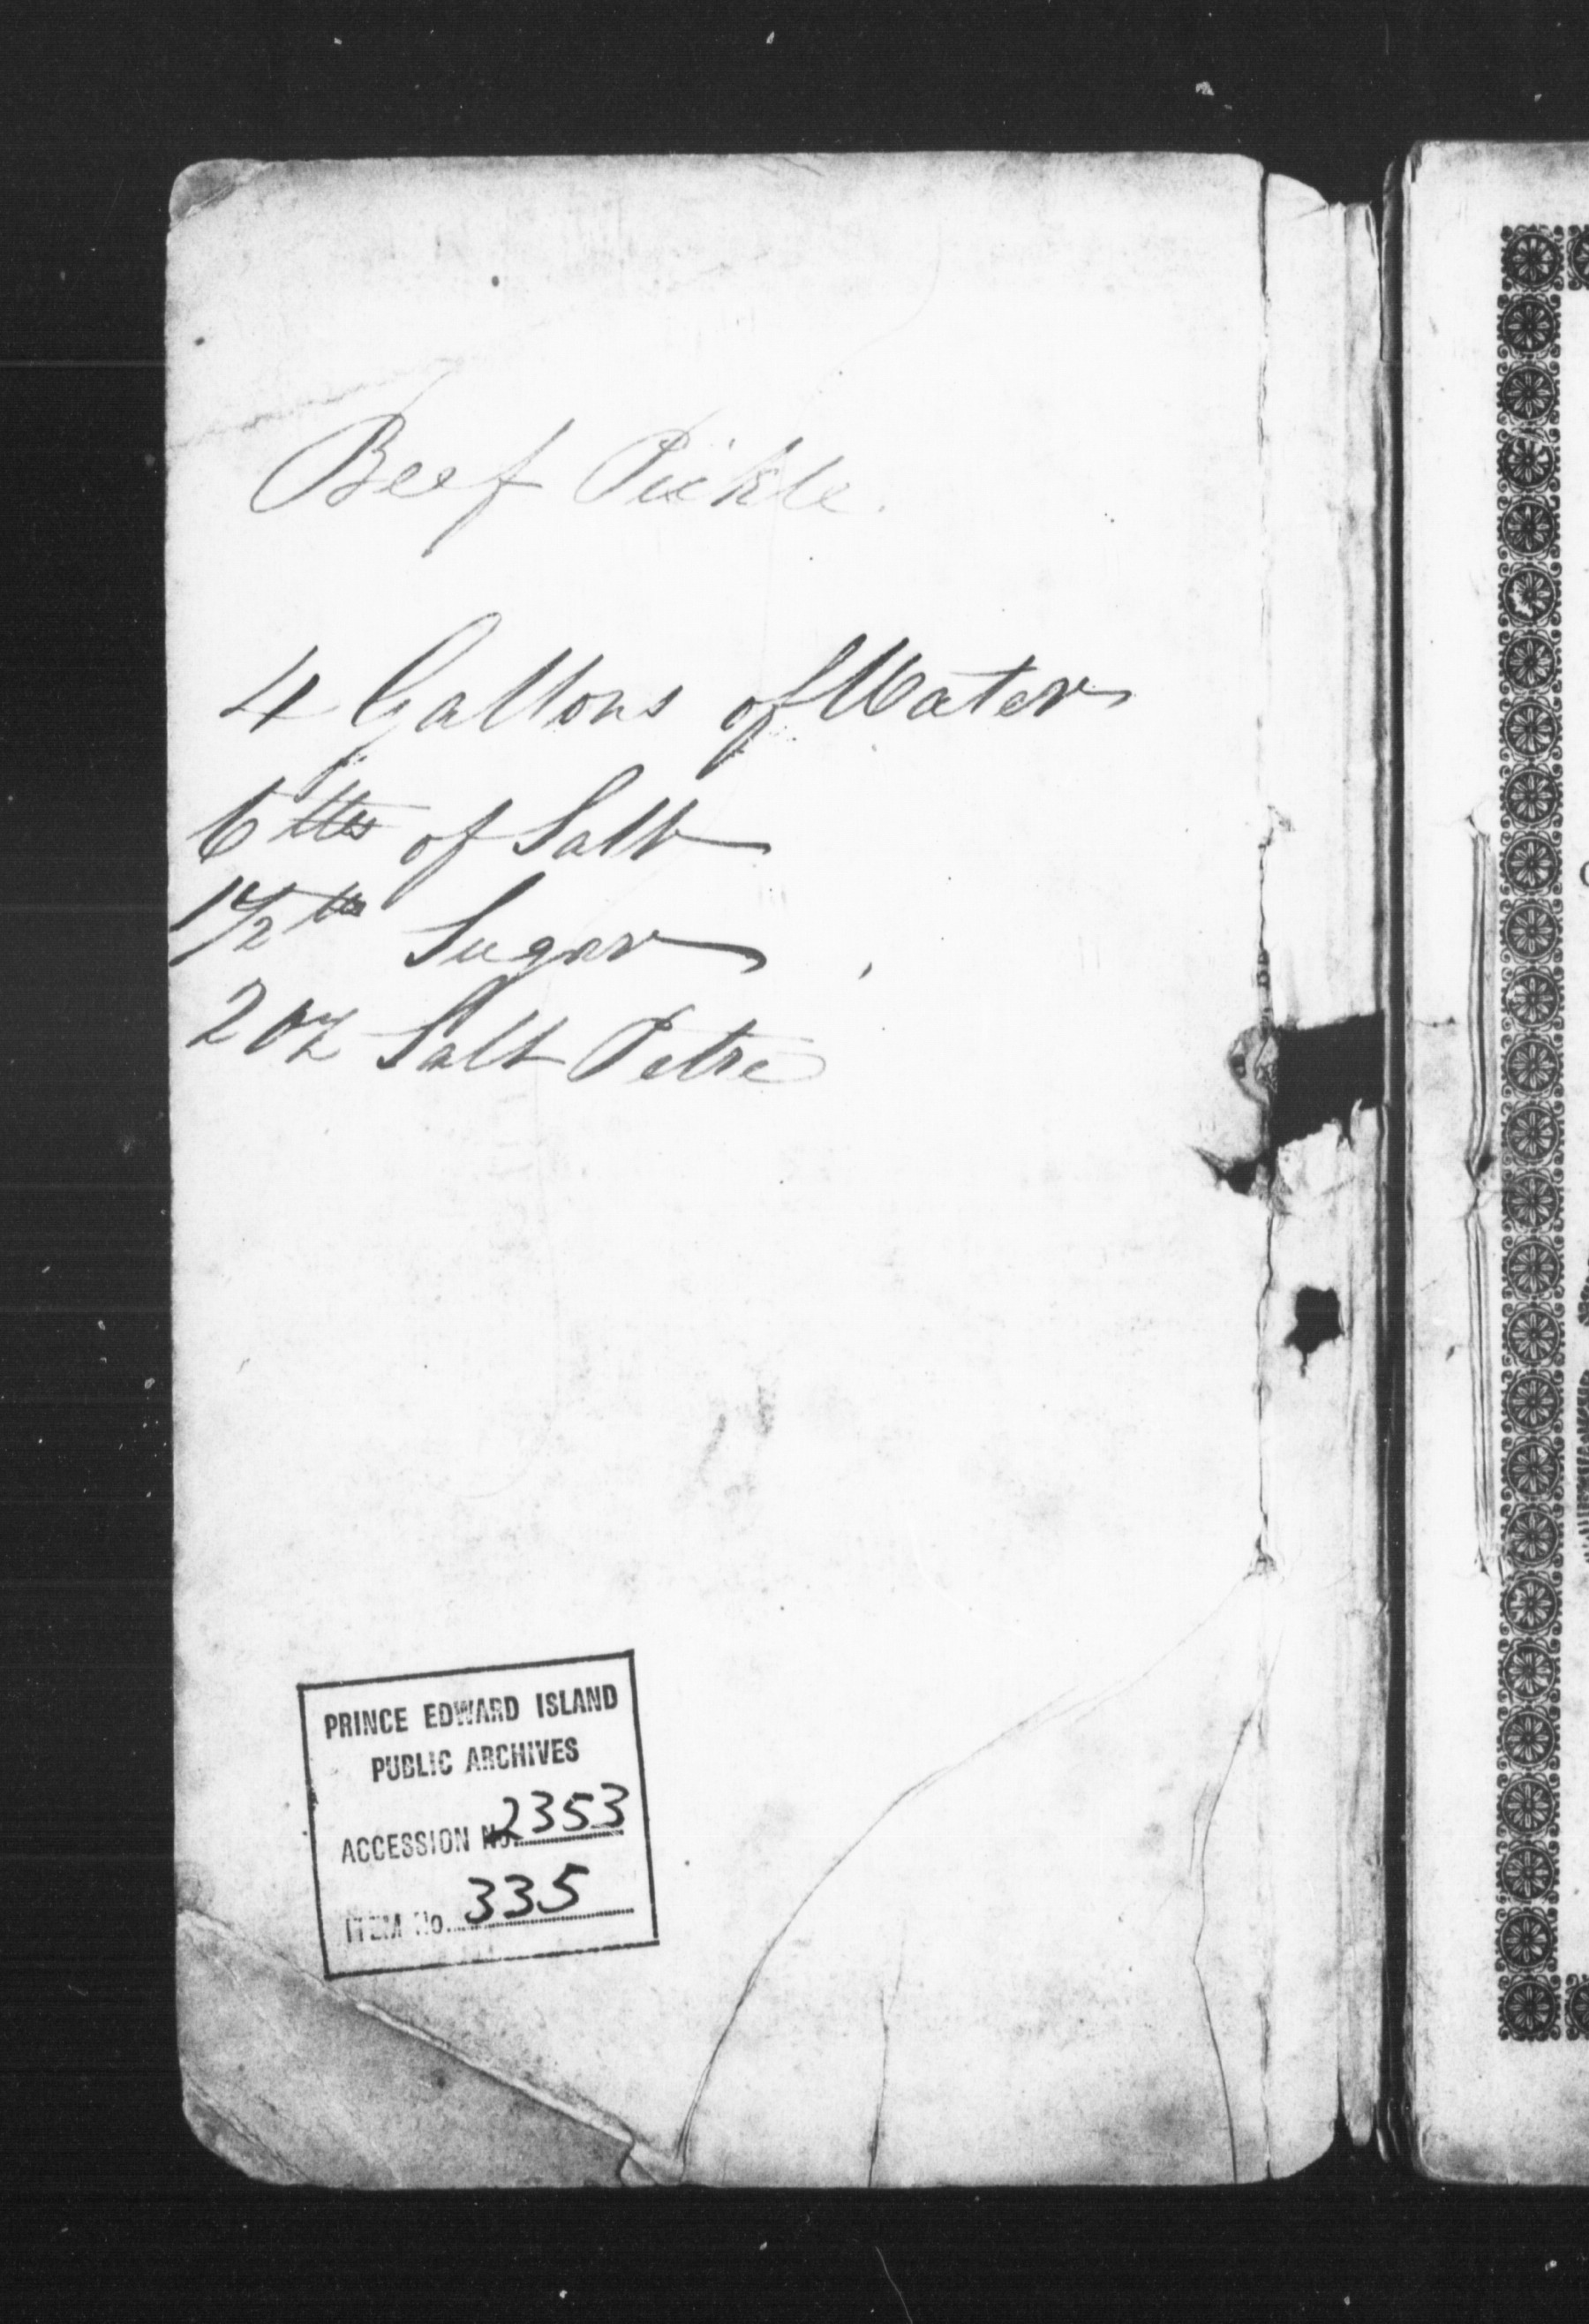 Beef Pickle.
4 Gallons of Water
6 lbs of Salt
1 1/2 lbs Sugar
2 oz Salt Petre
PRINCE EDWARD ISLAND
PUBLIC ARCHIVES
ACCESSION No. 2353
ITEM No. 335